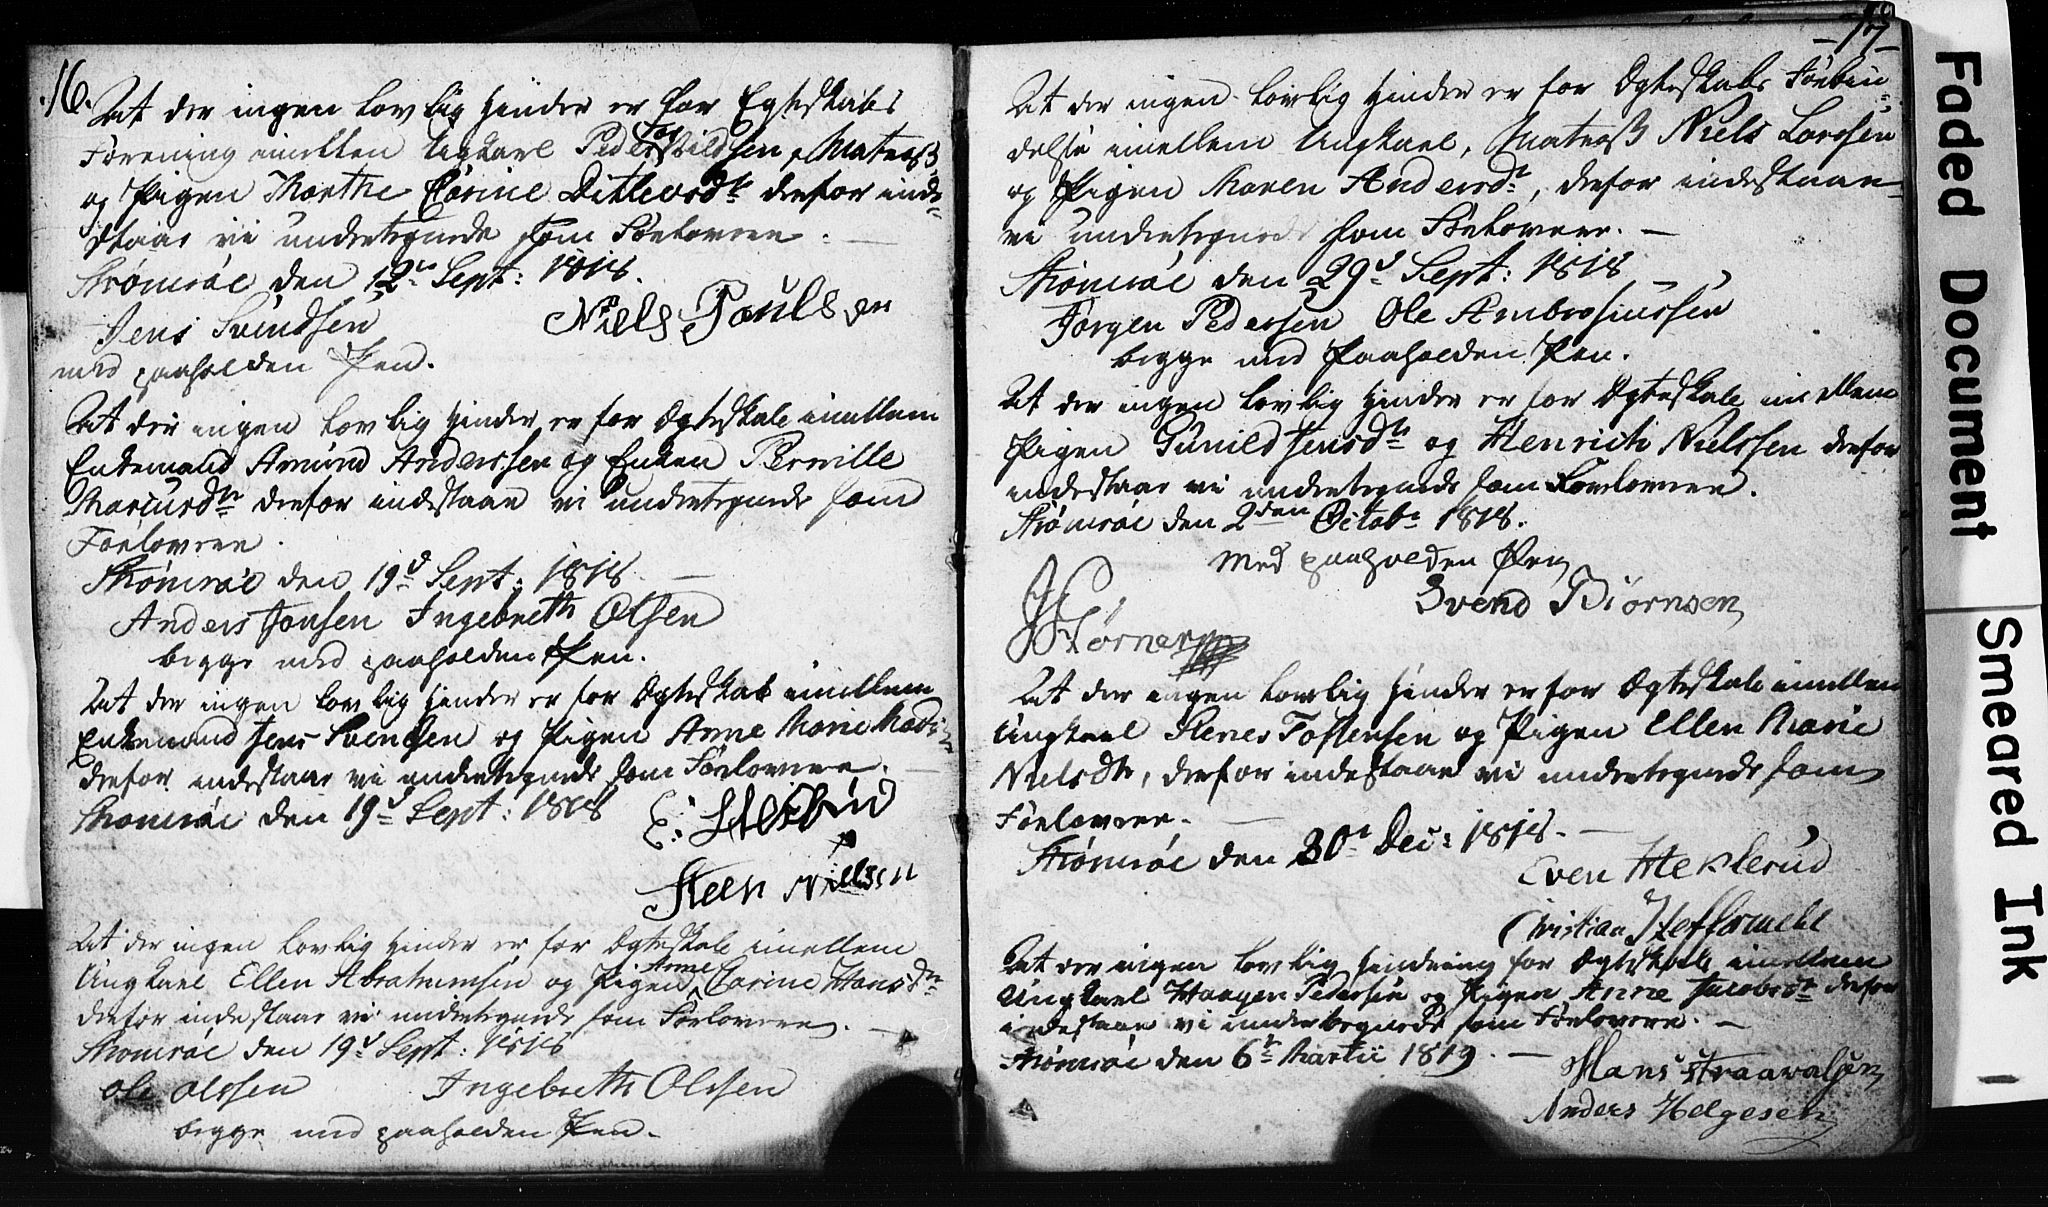 16.
At der ingen lovlig Hinder er for Egteskabs
Forening imellem Ungkarl Peder Tarvildsen, Matros
og Pigen Marthe Carine Ditlevsdtr derfor inde-
staar vi undertegnede som Forlovere.
Strømsøe den 12te Sept: 1818.
Jens Svendsen Niels Poulsen
med paaholden Pen.
At der ingen lovlig Hinder er for Ægteskab imellem
Enkemand Amund Anderssen og Enken Pernille
Marcusdtr derfor indestaar vi undertegnede som
Forlovere.
Strømsøe den 19d Sept: 1818. —
Anders Jonsen Ingebreth Olsen
begge med paaholden Pen.
At der ingen lovlig Hinder er for Ægteskab imellem
Enkemand Jens Svendsen og Pigen Anne Marie
derfor indestaar vi undertegnede som Forlovere. —
Strømsøe den 19d Sept: 1818
Steen Nielssen
At der ingen lovlig Hinder er for Ægteskab imellem
Ungkarl Ellen Abrahamsen og Pigen Anne Carine Hansdtr
derfor indestaar vi undertegnede som Forlovere. —
Strømsøe den 19d Sept: 1818
Ole Olssen Ingebreth Olssen
begge med paaholden Pen.
-17-
At der ingen lovlig Hinder er for Ægteskabs Forbin-
delse imellem Ungkarl, Matros Niels Larssen
og Pigen Maren Andersdtr, derfor indestaar
vi undertegnede som Forlovere. —
Strømsøe den 29d Sept: 1818
Jørgen Pedersen Ole Ambrosiussen
begge med Paaholden Pen.
At der ingen lovlig Hinder er for Ægteskab imellem
Pigen Gunild Jensdtr og Henrich Nielssen derfor
indestaar vi undertegnede som Forlovere.
Strømsøe den 2den Octobr 1818.
med paaholden Pen
Svend Biørnsen
At der ingen lovlig Hinder er for Ægteskab imellem
Ungkarl Stener Tostensen og Pigen Ellen Marie
Nielsdtr, derfor indestaar vi undertegnede som
Forlovere. —
Strømsøe den 30t Dec: 1818. —
Even Meklerud
Christian
At der ingen lovlig Hindring for Ægteskab imellem
Ungkarl Haagen Pedersen og Pigen Anne Jacobsdtr derfor
indestaar vi undertegnede som Forlovere. —
Strømsøe den 6te Martii 1819. —
Hans
Anders Helgesen
Faded Document
Smeared Ink